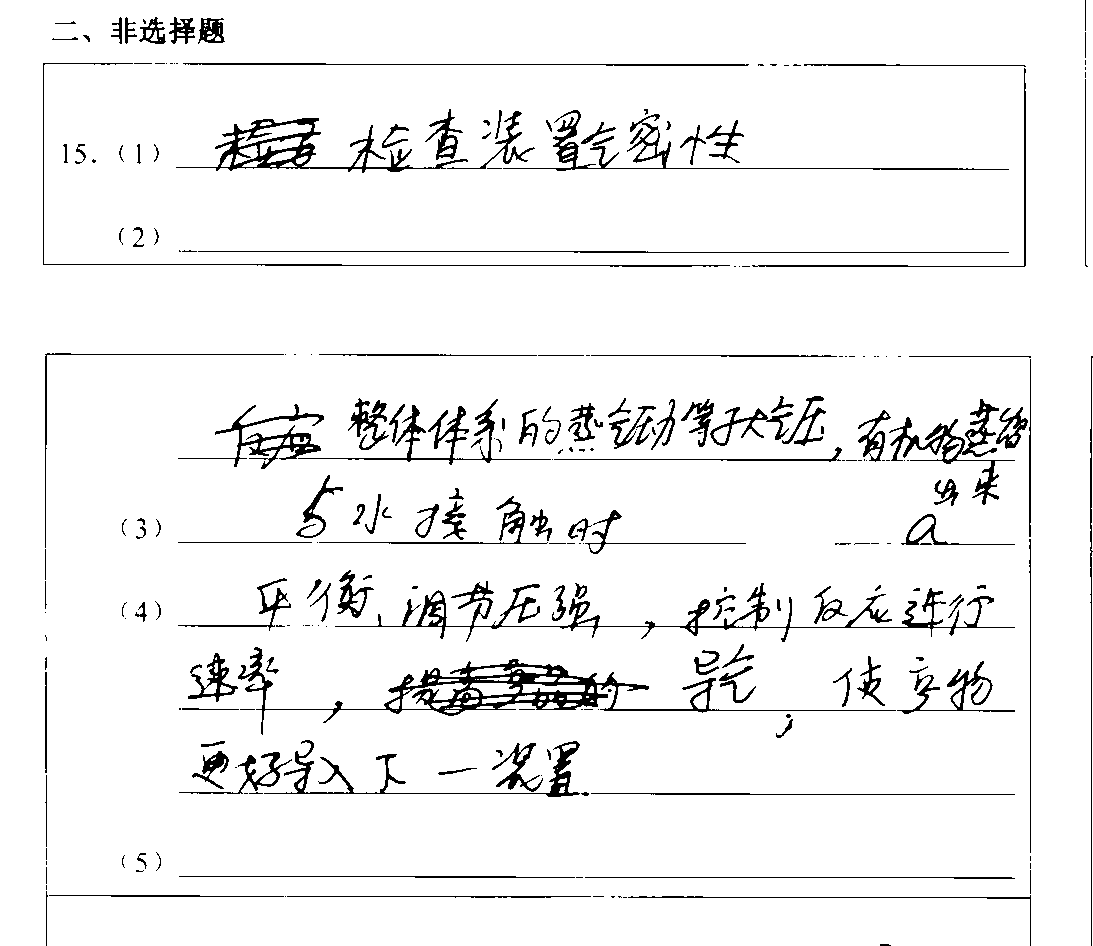 二、非选择题
15.（1） 检查装置气密性
（2）
整体体系的蒸气动等于大气压，有机物蒸馏
出来
（3） 与水接触时 a
（4） 平衡、调节压强，控制反应进行
速率， 导气；使产物
更好导入下一装置.
（5）